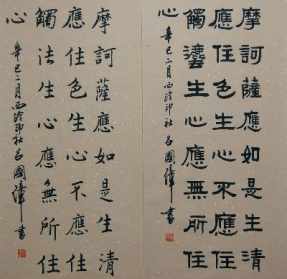 摩訶薩應如是生清
應住色生心不應住
觸灋生心應無所住
心
辛巳二月西泠印社呂國璋書
摩訶薩應如是生清
應住色生心不應住
觸法生心應無所住
心
辛巳二月西泠印社呂國璋書